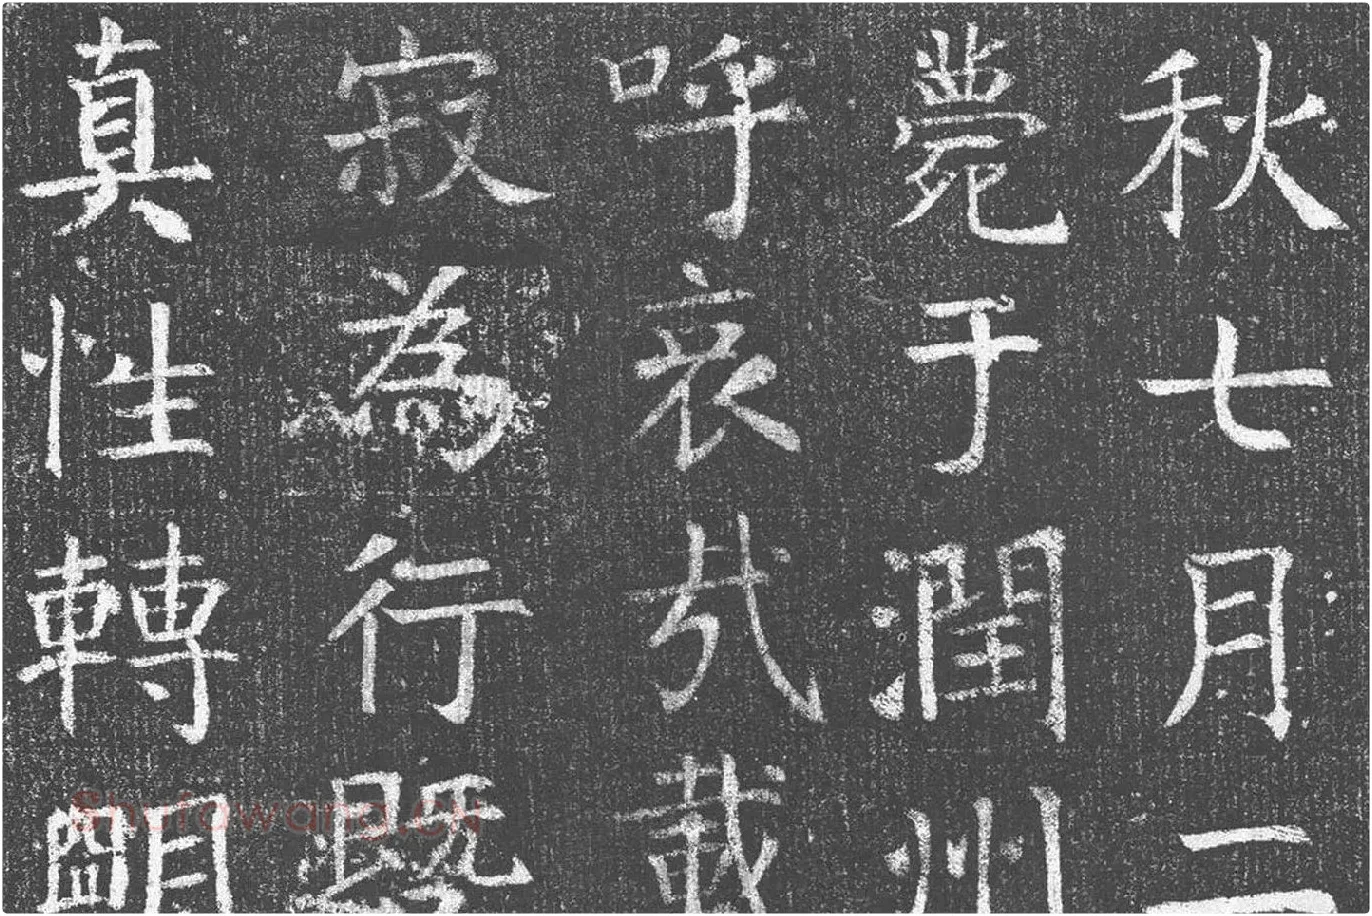 秋七月二
薨于潤州
呼哀哉
寂為行暨
真性轉朙
Shufawang.CN